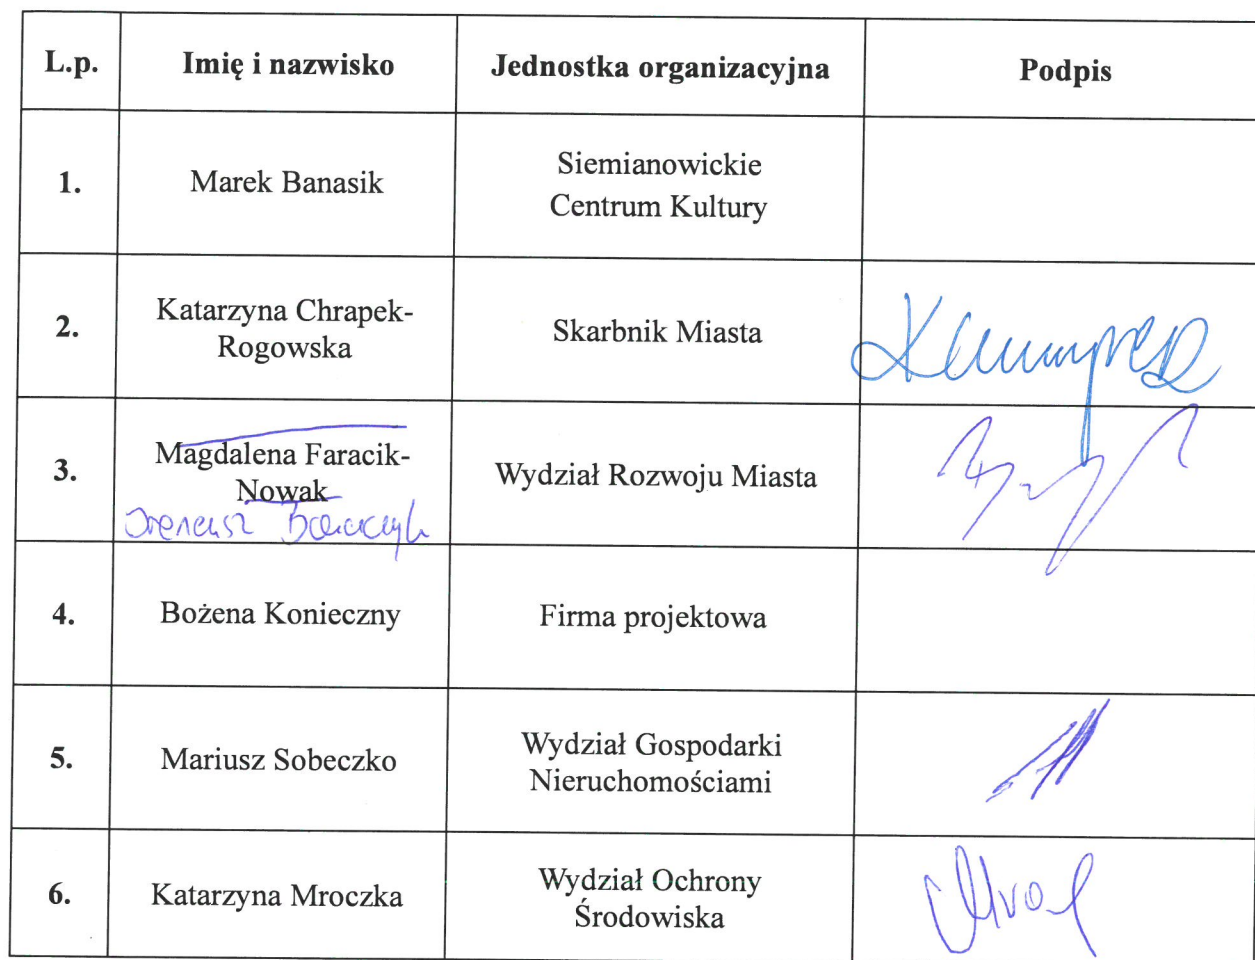 L.p. Imię i nazwisko Jednostka organizacyjna Podpis
1. Marek Banasik Siemianowickie
Centrum Kultury
2. Katarzyna Chrapek-
Rogowska Skarbnik Miasta
3. Magdalena Faracik-
Nowak Wydział Rozwoju Miasta
Ireneusz
4. Bożena Konieczny Firma projektowa
5. Mariusz Sobeczko Wydział Gospodarki
Nieruchomościami
6. Katarzyna Mroczka Wydział Ochrony
Środowiska